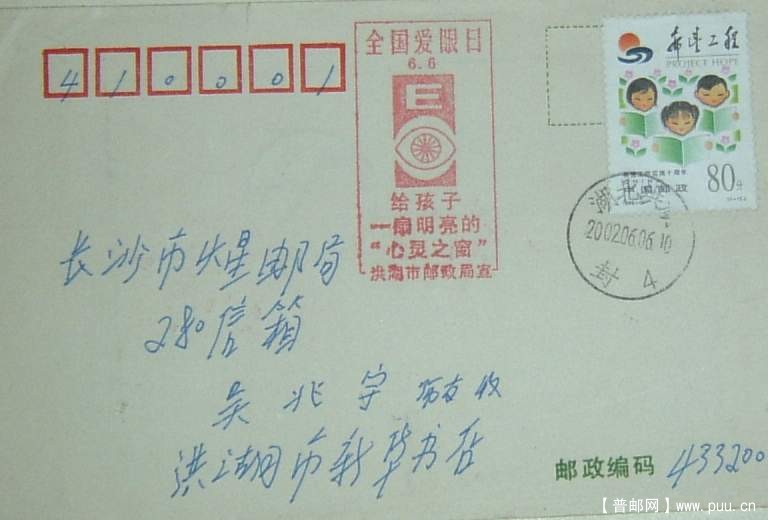 410001
全国爱眼日
6.6
E
给孩子
一扇明亮的
“心灵之窗”
洪湖市邮政局宣
希望工程
PROJECT HOPE
希望工程实施十周年
中国邮政
80分
湖北
2002.06.06.10
封 4
长沙市火星邮局
280信箱
吴兆宇 收
洪湖市新华书店
邮政编码 433200
【普邮网】www.puu.cn